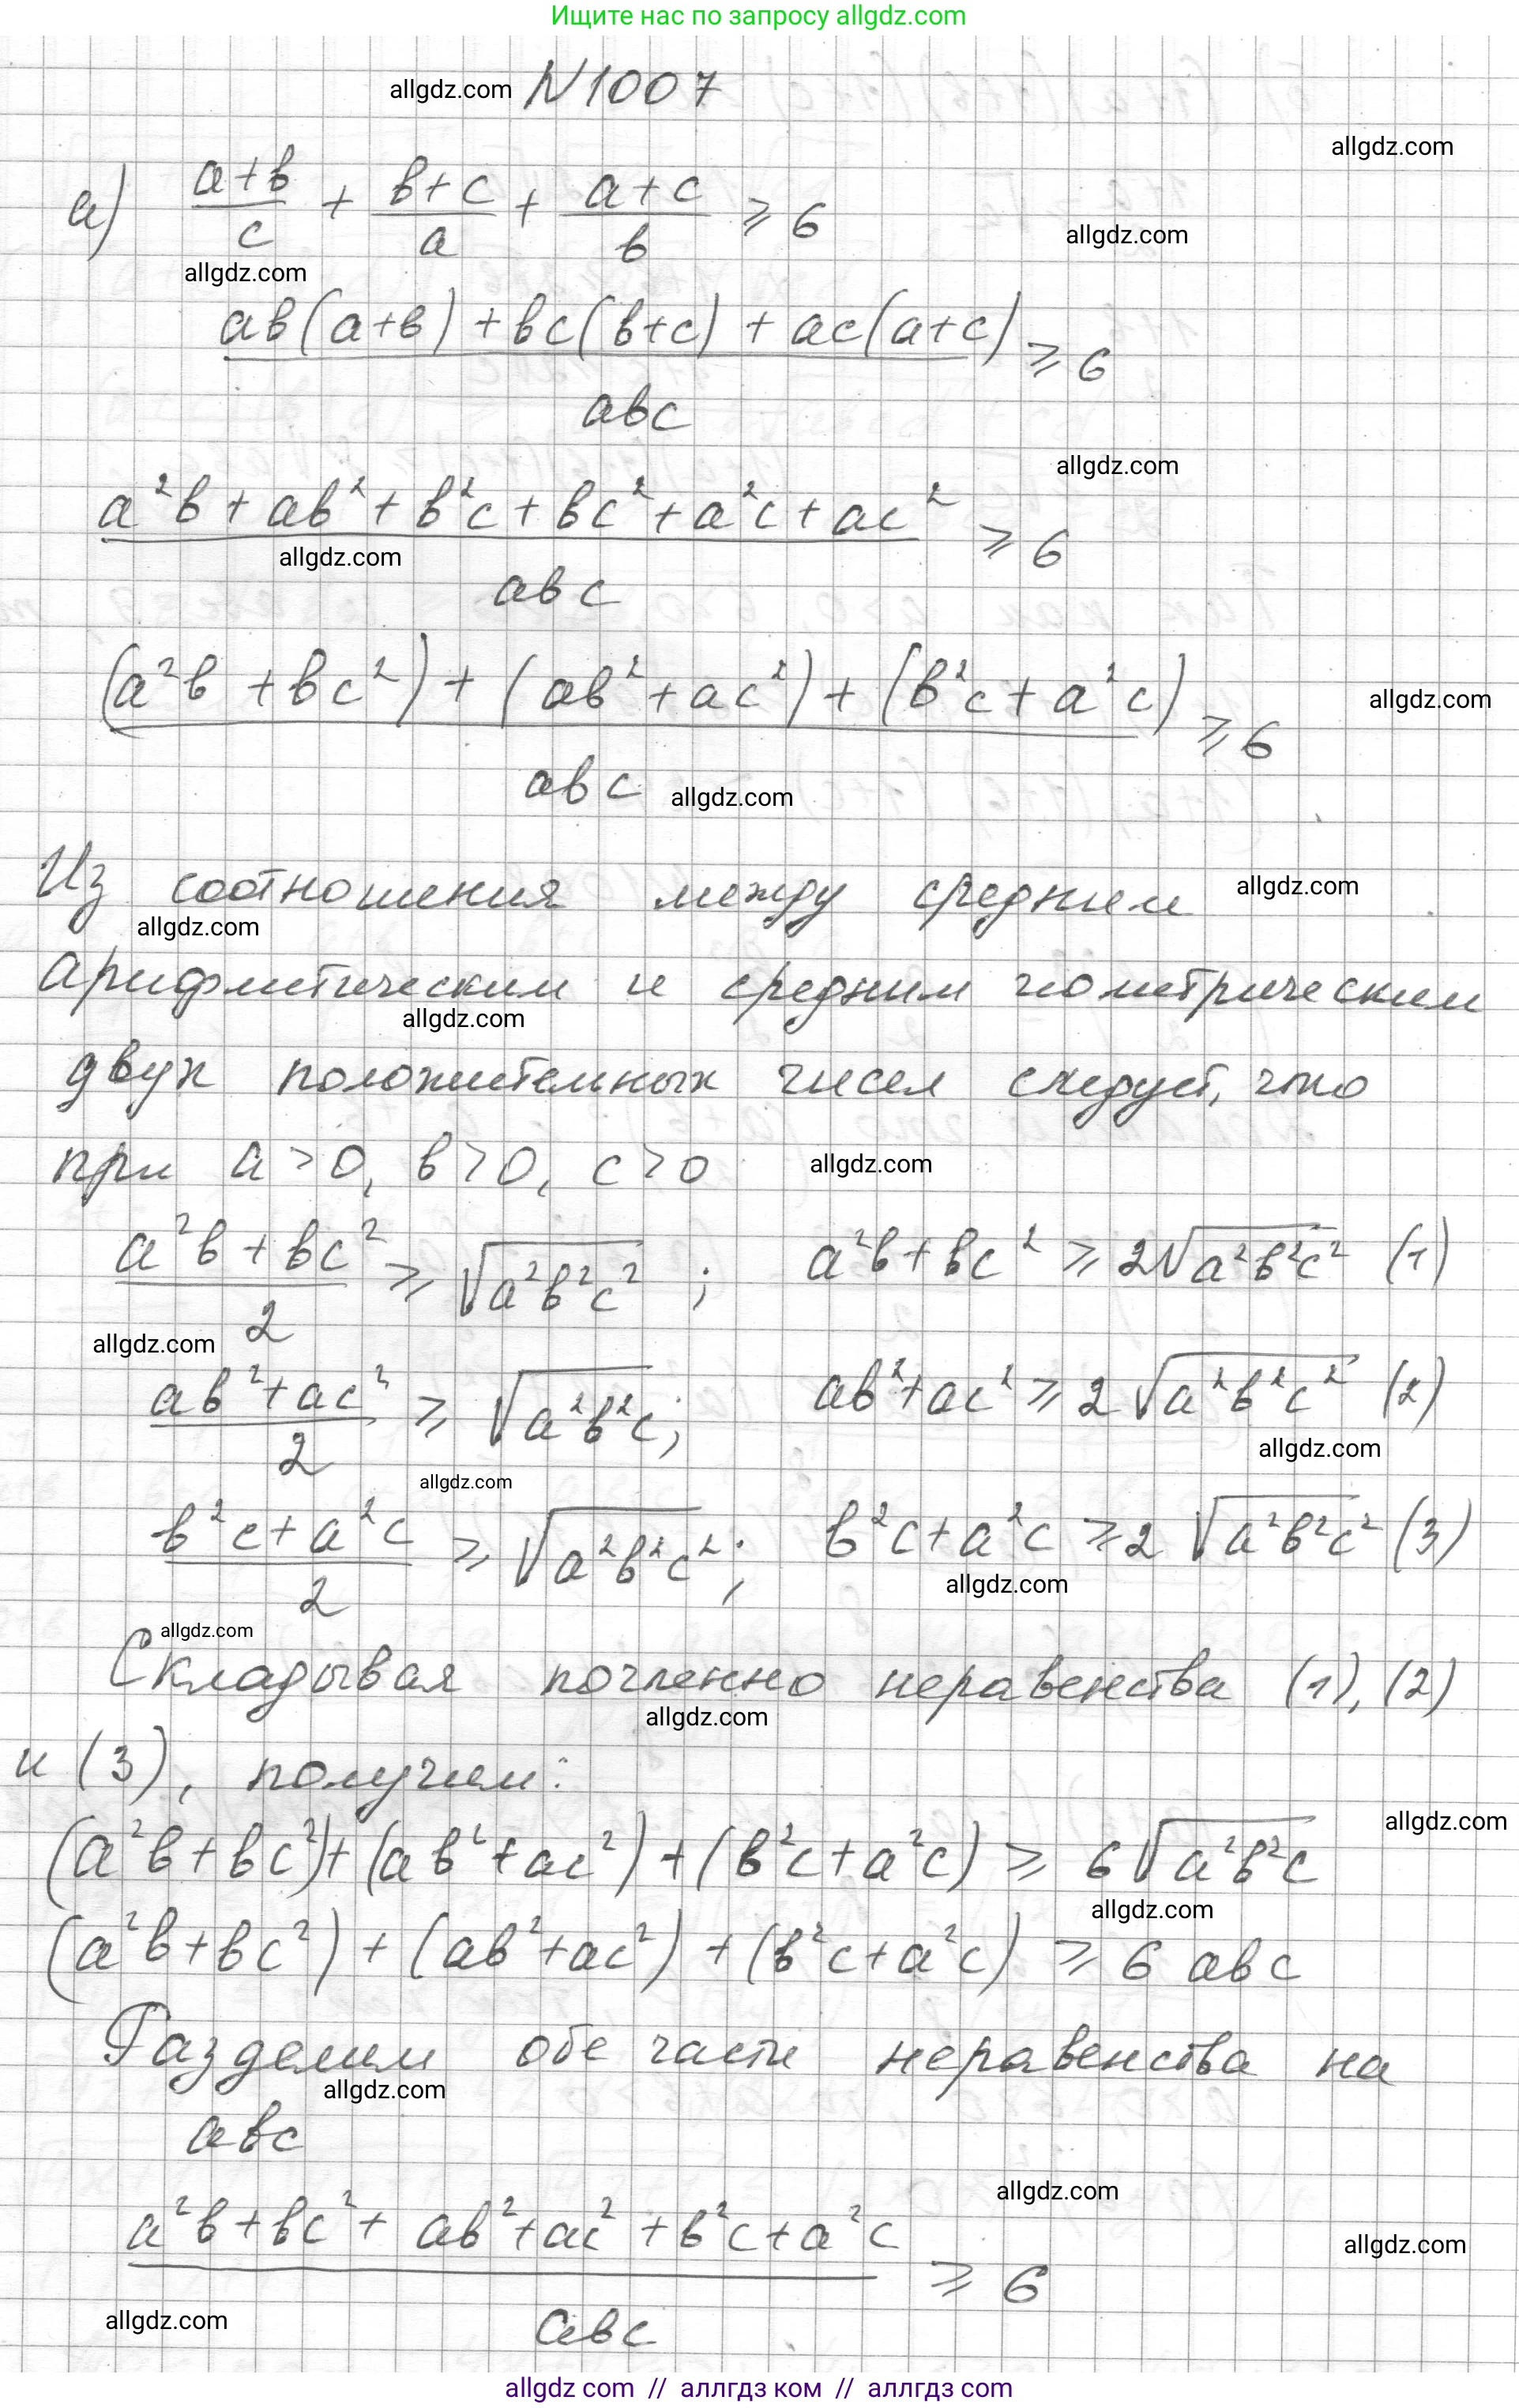 Ищите нас по запросу allgdz.com
allgdz.com N 1007
allgdz.com
а) (a+b)/c + (b+c)/a + (a+c)/b ≥ 6
allgdz.com
allgdz.com
(ab(a+b) + bc(b+c) + ac(a+c))/abc ≥ 6
allgdz.com
(a²b + ab² + b²c + bc² + a²c + ac²)/abc ≥ 6
allgdz.com
((a²b + bc²) + (ab² + ac²) + (b²c + a²c))/abc ≥ 6
allgdz.com
allgdz.com
Из соотношения между средним
allgdz.com
allgdz.com
арифметическим и средним геометрическим
allgdz.com
двух положительных чисел следует, что
при a > 0, b > 0, c > 0
allgdz.com
(a²b + bc²)/2 ≥ √(a²b²c²) ; a²b + bc² ≥ 2√(a²b²c²) (1)
allgdz.com
(ab² + ac²)/2 ≥ √(a²b²c); ab² + ac² ≥ 2√(a²b²c²) (2)
allgdz.com
allgdz.com
(b²c + a²c)/2 ≥ √(a²b²c²); b²c + a²c ≥ 2√(a²b²c²) (3)
allgdz.com
allgdz.com
Складывая почленно неравенства (1), (2)
allgdz.com
и (3), получим:
allgdz.com
(a²b + bc²) + (ab² + ac²) + (b²c + a²c) ≥ 6√(a²b²c)
allgdz.com
(a²b + bc²) + (ab² + ac²) + (b²c + a²c) ≥ 6 abc
Разделим обе части неравенства на
allgdz.com
abc
allgdz.com
(a²b + bc² + ab² + ac² + b²c + a²c)/abc ≥ 6
allgdz.com
allgdz.com
allgdz com // аллгдз ком // аллгдз com